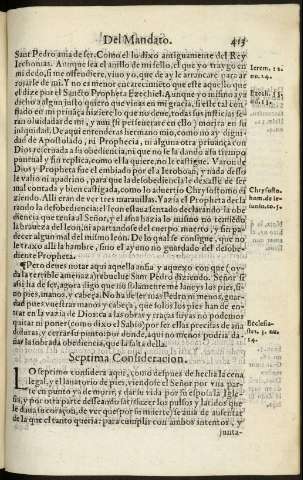 Del Mandato. 413
Sant Pedro auia de ser. Como el lo dixo antiguamente del Rey
Iechonias. Aunque sea el anillo de mi sello, el que yo traygo en
mi dedo, si me offendiere, viuo yo, que de ay le arrancare para ar
rojarle de mi. Y no es menor encarecimiento que este aquello que
el dize por el Sancto Propheta Ezechiel. Aunque yo mismo aya
dicho a algun justo quiero que viuas en mi gracia, si este tal con-
fiado en mi hiziere lo que no deue, todas sus justicias se-
ran oluidadas de mi, y aun si perseuerare en ello morira en su
iniquidad. De aqui entenderas hermano mio, como no ay digni-
dad de Apostolado, ni Prophecia, ni alguna otra priuança con
Dios reseruada a su obediencia, ni que no se la deua a su tiempo
puntual y sin replica, como el la quiere, no le castigue. Varon de
Dios y Propheta fue el embiado por el a Ieroboan, y nada desso
le valio ni
mal contada y bien castigada, como lo aduertio Chrysostomo
ziendo. Alli eran de ver tres marauillas. Yazia el Propheta
rando la desobediencia: el leon estaua declarando la obe-
diencia que tenia al Señor, y el asna hazia lo mismo no temiendo
la braueza del leon, ni apartandose del cuerpo muerto, y sin pa-
decer algun mal del mismo leon. De lo qual se consigue, que no
le traxo alli la hambre, sino el ayuno no guardado del desobe-
diente Propheta.
¶ Pero deues notar aqui aquella ansia y aquexo con que
da la terrible amenaza) rebuelue San Pedro diziendo. Señor si
assi ha de ser, agora digo que no solamente me laueys los pies, si-
no pies, manos, y cabeça. No ha de ser los Pedro ni menos, guar-
dad pues vuestras manos y cabeça, que solos los pies han de en-
trar en la vazia de Dios: ca a las obras y traças suyas no podemos
quitar ni poner (como dixo el Sabio) por ser ellas precisas de aña
diduras, y cerrarse punto por donde, aqui no menos podria da-
ñar la sobrada obediencia, que la falta della.
Septima Consideracion.
LO septimo considera aqui, como despues de hecha la cena
legal, y el lauatorio de pies, viendose el Señor por vna par-
te en punto ya de morir, y dar su vida por su esposa la Igle-
sia, y por otra parte desseando satisfazer los pulsos y latidos que
le daua su coraçon, de ver que por su muerte se auia de ausentar
de la que el tanto queria: para cumplir con ambos intentos, y
junta-
Ierem. 22.
nu. 24.
Ezech. 33.
nu. 13.
Chrysosto-
hom. de ie-
iunio. to. 5.
Ecclesia-
stes. 3. nu.
14.